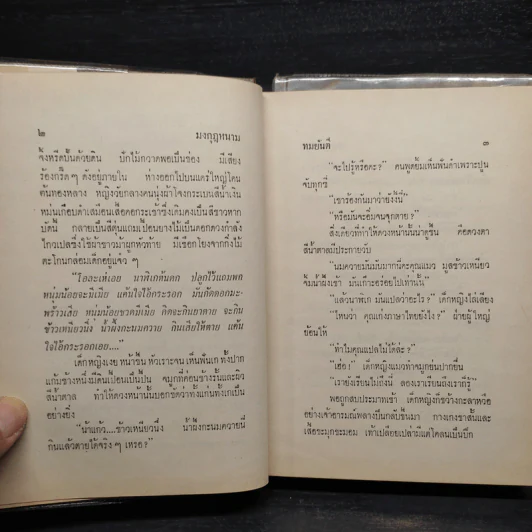 ๒ มงกุฎหนาม
จิ้งหรีดปั้นด้วยดิน ปักไม้กวาดพอเป็นช่อง มีเสียง
ร้องกรี๊ด ๆ ดังอยู่ภายใน ห่างออกไปบนแคร่ใหญ่โคน
ต้นทองหลาง หญิงวัยกลางคนนุ่งผ้าโจงกระเบนสีน้ำเงิน
หม่นเกือบดำเสมอนเสื้อคอกระเช้าซึ่งเดิมคงเป็นสีขาวหาก
บัดนี้ กลายเป็นสีตุ่นแถมเปื้อนยางไม้เป็นดอกดวงกำลัง
ไกวเปลซึ่งใช้ผ้าขาวม้าผูกหัวท้าย มีเชือกโยงจากกิ่งไม้
ตะโกนกล่อมเด็กอยู่แจ้ว ๆ
"โอละเห่เอย นาพี่เกทันดก ปลูกไว้แถมพก
หนุ่มน้อยจะมีเมีย แค้นใจไอ้กระรอก มันกัดดอกมะ-
พร้าวเสีย หนุ่มน้อยขวดมีเมีย คิดจะกินยาตาย จะกิน
ข้าวเหนียวนึ่ง น้ำผึ้งกะนมควาย กินเสียให้ตาย แค้น
ใจไอ้กระรอกเอย...."
เด็กหญิงเงยหน้าขึ้น หัวเราะจนเห็นฟันเก ทั้งปาก
แก้มข้างหนึ่งมีดินเปื้อนเป็นปื้น จมูกที่ค่อนข้างรั้นและผิว
สีน้ำตาล ทำให้ดวงหน้านั้นบอกชัดว่าทั้งแก่นทั้งเกเป็น
อย่างยิ่ง
"น้าแก้ว....ข้าวเหนียวนึ่ง น้ำผึ้งกะนมควายนี่
กินแล้วตายได้จริง ๆ เหรอ?"
ทมยันตี ๓
"จะไปรู้หรือคะ?" คนพูดยิ้มเห็นฟันดำเพราะปูน
จับทุกซี่
"เขาร้องกันมาว่ายังงี้นี่"
"หรือมันจะอิ่มจนจุกตาย?"
สิ่งเดียวที่ทำให้ดวงหน้านั้นน่าดูขึ้น คือดวงตา
สีน้ำตาลมีประกายวับ
"นมควายมันมันมากนี่คะคุณแมว มูลข้าวเหนียว
จิ้มน้ำผึ้งเข้า มันเกาะอร่อยไปเท่านั้น"
"แล้วนาพี่เก มันแปลว่าอะไร?" เด็กหญิงไล่เลียง
"ไหนว่า คุณเก่งภาษาไทยยังไง?" ฝ่ายผู้ใหญ่
ย้อนให้
"ทำไมคุณแปลไม่ได้ล่ะ?"
"เฮ่อ!" เด็กหญิงแมวทำจมูกย่นปากยื่น
"เรายังเรียนไม่ถึงนี่ ลองเราเรียนถึงเราก็รู้"
พอถูกสบประมาทเข้า เด็กหญิงก็ขว้างกะลาหวือ
อย่างเจ้าอารมณ์พลางยืนกลับขึ้นมา กางเกงขาสั้นและ
เสื้อขะมุกขะมอม เท้าเปลือยเปล่ามีแต่โคลนเป็นปึก